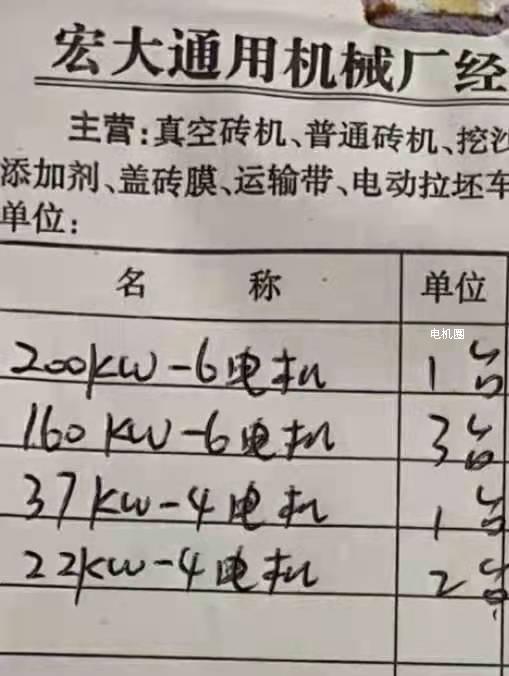 宏大通用机械厂经
主营:真空砖机、普通砖机、挖沙
添加剂、盖砖膜、运输带、电动拉坯车
单位:
名 称 单位
电机圈
200KW-6电机 1台
160KW-6电机 3台
37KW-4电机 1台
22KW-4电机 2台